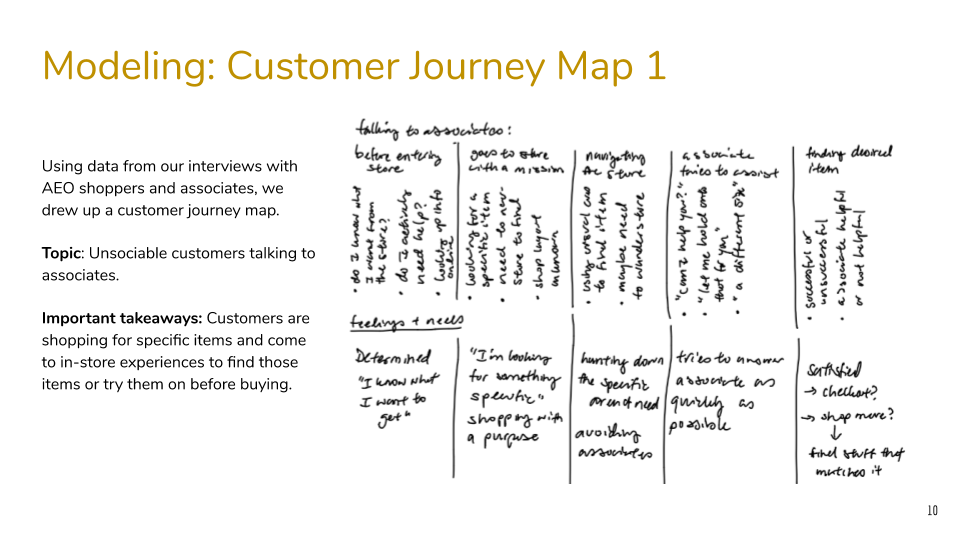 Modeling: Customer Journey Map 1
Using data from our interviews with
AEO shoppers and associates, we
drew up a customer journey map.
Topic: Unsociable customers talking to
associates.
Important takeaways: Customers are
shopping for specific items and come
to in-store experiences to find those
items or try them on before buying.
talking to associates:
before entering
store
• do I know what
I want from
the store?
• do I actively
need help?
• looking up info
online
goes to store
with a mission
• looking for a
specific item
• need to nav-
store to find
• shop layout
unknown
navigating
the store
• using visual cues
to find item
• maybe need
to wander store
associate
tries to assist
• "can I help you?"
• "let me hold onto
that for you"
• "a different size"
finding desired
item
• successful or
unsuccessful
• associate helpful
or not helpful
feelings + needs
Determined
"I know what
I want to
get"
"I'm looking
for something
specific"
shopping with
a purpose
hunting down
the specific
area of need
avoiding
associates
tries to answer
associate as
quickly as
possible
satisfied
→ checkout?
→ shop more?
↓
find stuff that
matches it
10